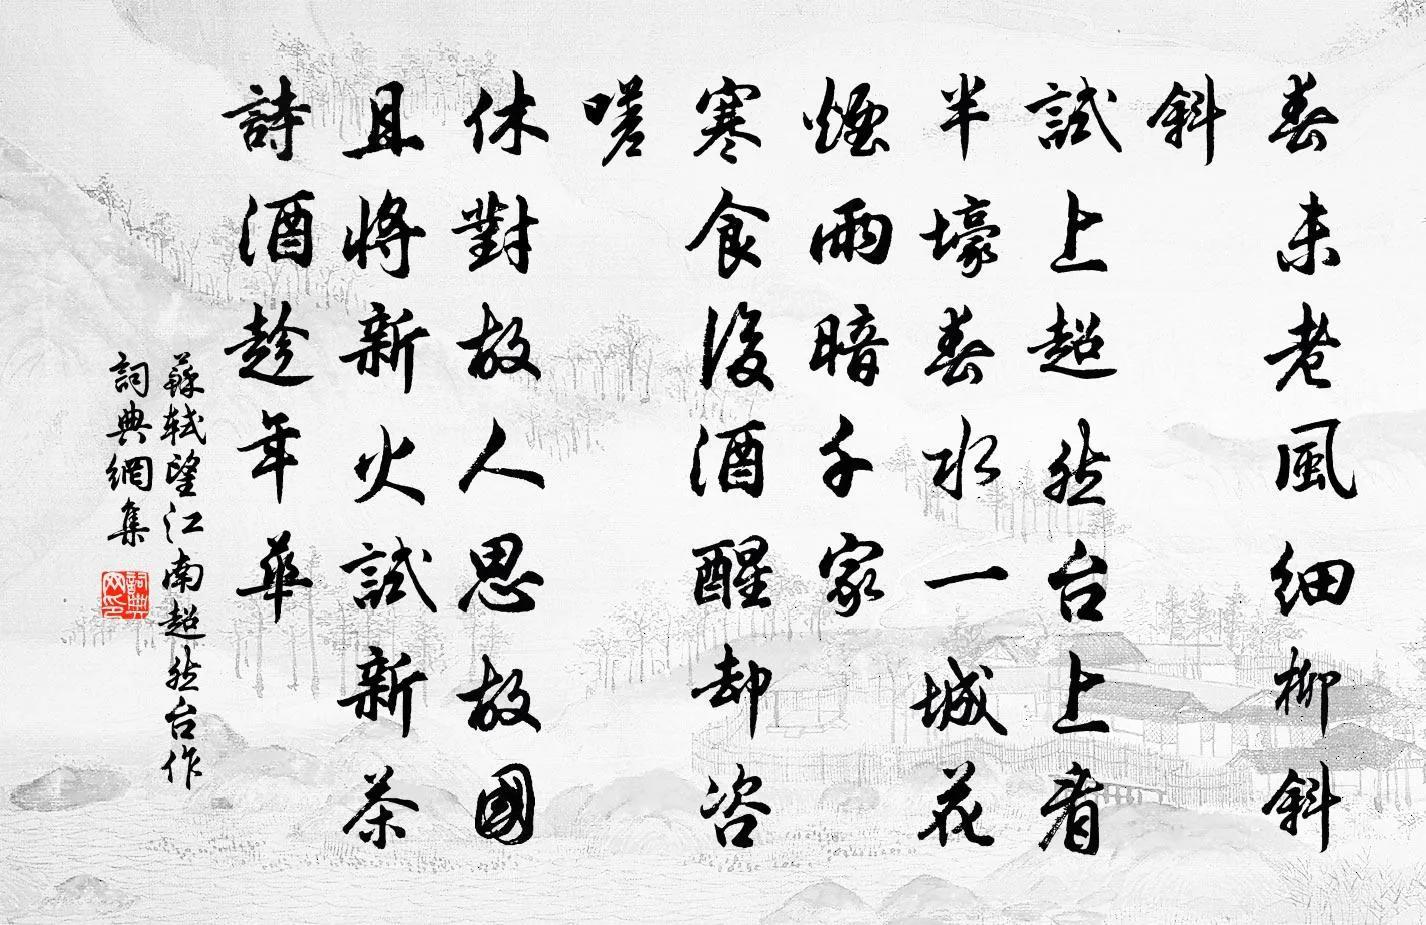 春未老風細柳斜
斜
試上超然台上看
半壕春水一城花
煙雨暗千家
寒食後酒醒却咨
嗟
休對故人思故國
且將新火試新茶
詩酒趁年華
蘇軾望江南超然台作
詞典網集
詞典网印